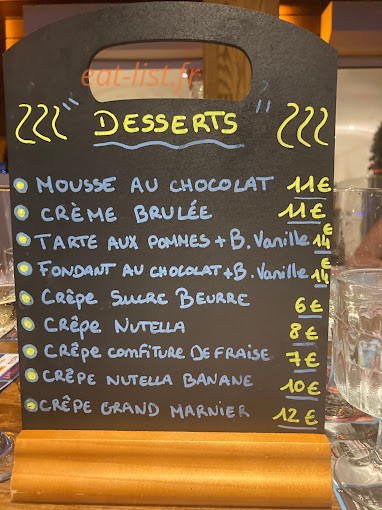 eat-list.fr
"DESSERTS"
MOUSSE AU CHOCOLAT 11€
CRÈME BRULÉE 11€
TARTE AUX POMMES + B. Vanille 14€
FONDANT AU CHOCOLAT + B. Vanille 14€
Crêpe Sucre Beurre 6€
Crêpe NUTELLA 8€
CRÊPE CONFITURE DE FRAISE 7€
CRÊPE NUTELLA BANANE 10€
CRÊPE GRAND MARNIER 12€